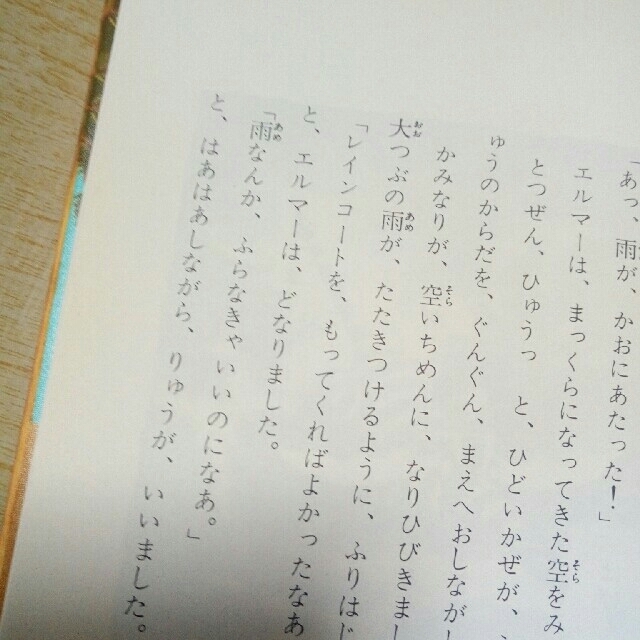 「あっ、雨が、かおにあたった！」
エルマーは、まっくらになってきた空をみ
とつぜん、ひゅうっ と、ひどいかぜが、
ゅうのからだを、ぐんぐん、まえへおしながし
かみなりが、空いちめんに、なりひびきまし
大つぶの雨が、たたきつけるように、ふりはじ
「レインコートを、もってくればよかったなあ
と、エルマーは、どなりました。
「雨なんか、ふらなきゃいいのになあ。」
と、はあはあしながら、りゅうが、いいました。